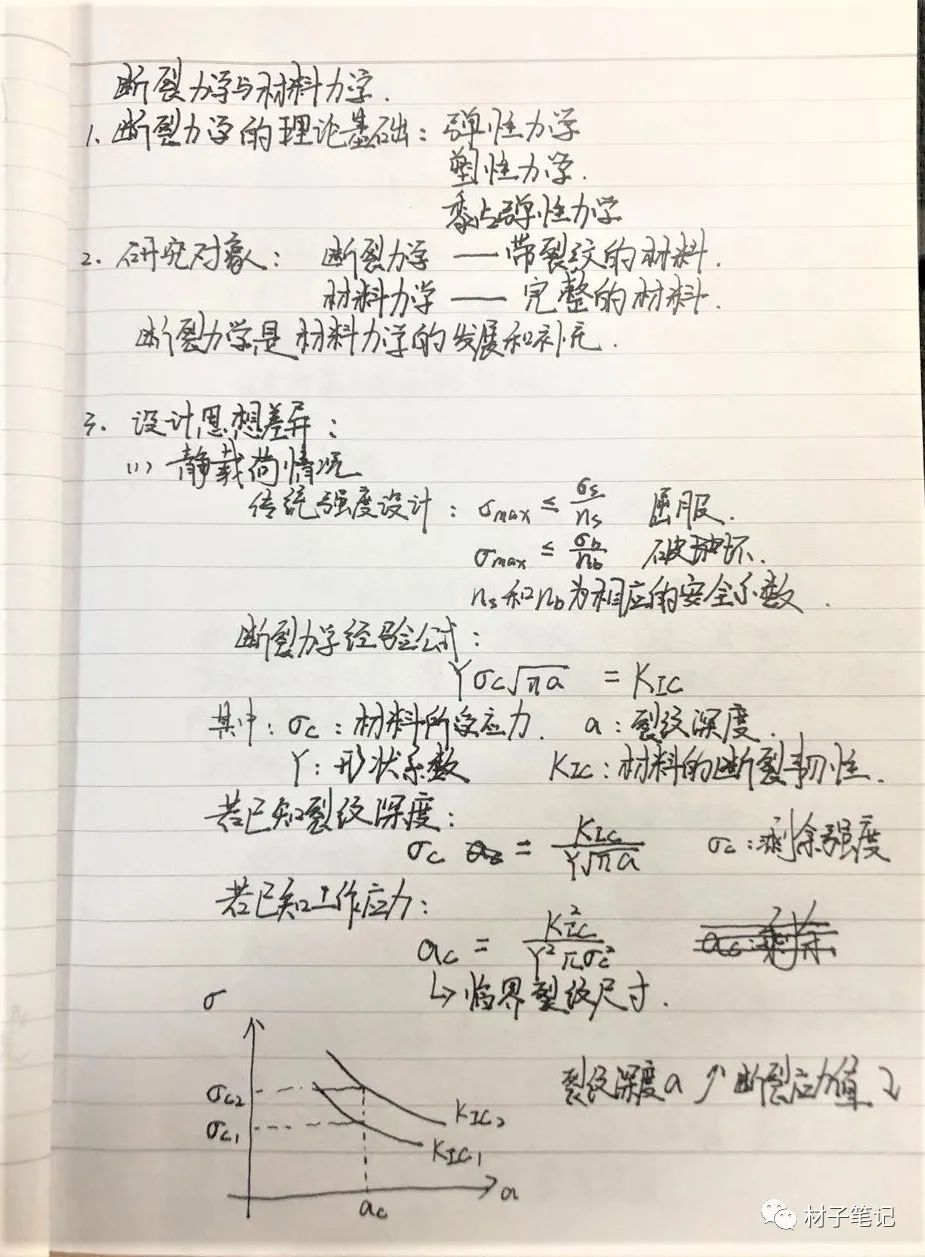 断裂力学与材料力学.
1. 断裂力学的理论基础: 弹性力学
塑性力学.
黏弹性力学
2. 研究对象: 断裂力学 —— 带裂纹的材料.
材料力学 —— 完整的材料.
断裂力学是材料力学的发展和补充.
3. 设计思想差异:
(1) 静载荷情况
传统强度设计: σmax ≤ σs/ns 屈服.
σmax ≤ σb/nb 破坏.
ns和nb为相应的安全系数.
断裂力学经验公式:
Yσc√πa = KIC
其中: σc: 材料所受应力. a: 裂纹深度.
Y: 形状系数 KIC: 材料的断裂韧性.
若已知裂纹深度:
σc = KIC/Y√πa σc: 剩余强度
若已知工作应力:
ac = KIC²/Y²πσc² ac: 剩余
↳ 临界裂纹尺寸.
σ
裂纹深度a ↑ 断裂应力值 ↓
σc2
σc1
KIC2
KIC1
a
ac
材子笔记